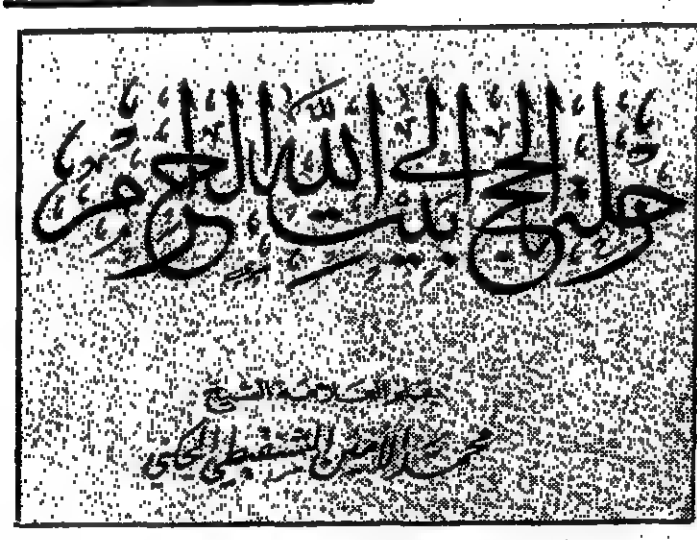 رحلة الحج إلى بيت الله الحرام
بقلم العلامة الشيخ
محمد الأمين الشنقيطي الجكني